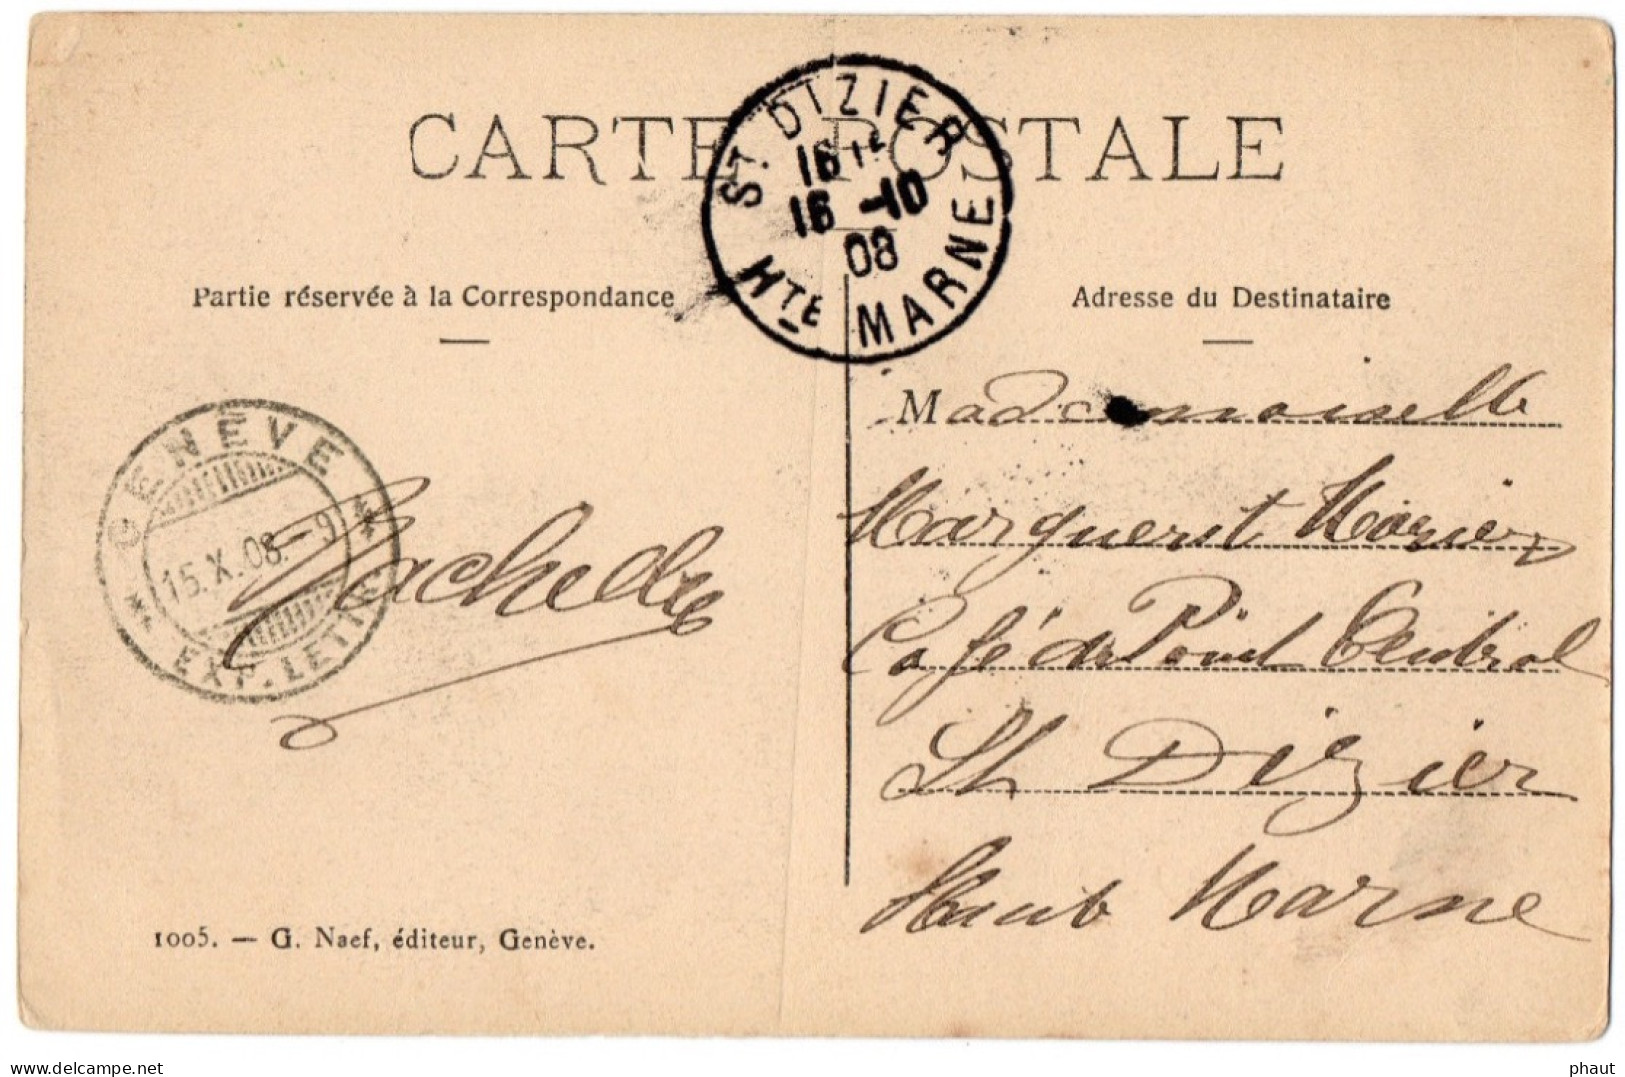 CARTE POSTALE
ST. DIZIER
16 1E
16 -10
08
HTE MARNE
Partie réservée à la Correspondance
Adresse du Destinataire
GENÈVE
15.X.08.-9
EXP. LETTR.
Rachelle
Mademoiselle
Marguerit
Café du Point Central
St Dizier
Haute Marne
1005. — G. Naef, éditeur, Genève.
phaut